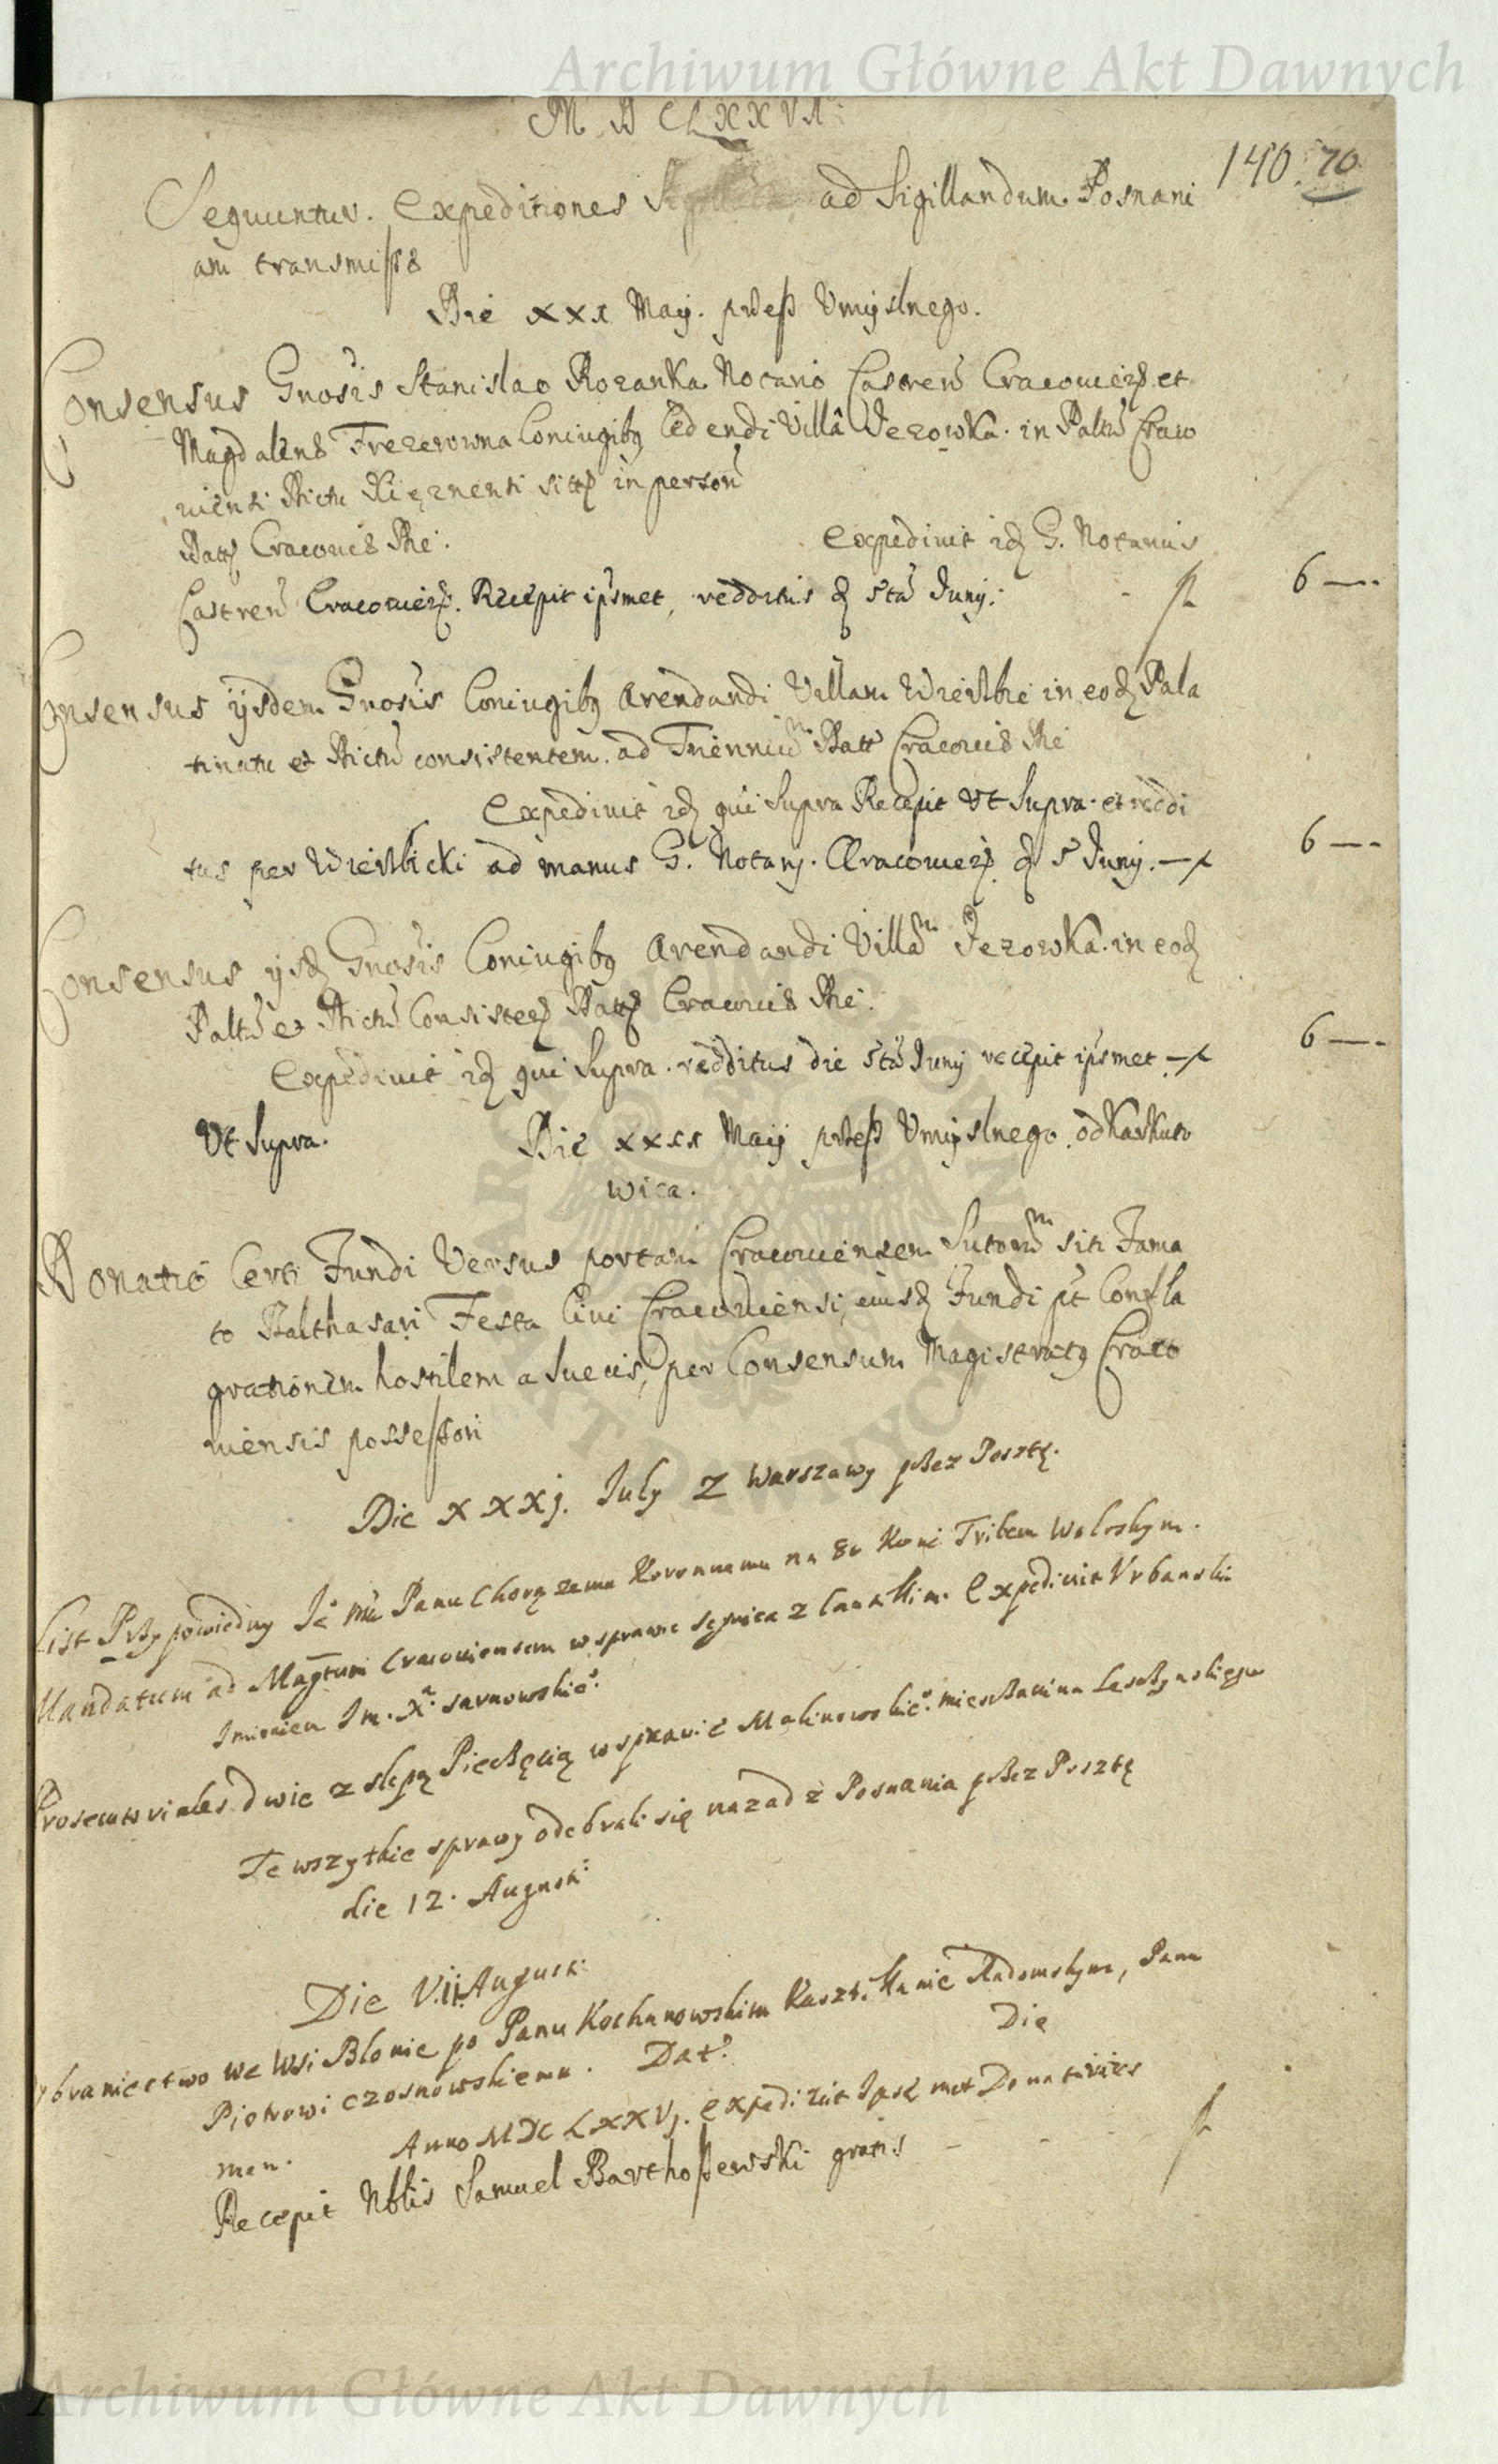 Archiwum Główne Akt Dawnych
M D CLXXVI
140. 70
Sequuntur. Expeditiones ad Sigillandum Posnani
am transmissæ
Die XXX Maij. przesß Vmyslnego.
Consensus Gnosis Stanislao Rozanka Notario Castren Cracowien et
Magdalenæ Frezerowna Coniugibq Cedendi Villâ Jezowka in Paltu Craco
uiensi Dictu Xięznensi in person
Datt Cracouiæ Die. Expediuit idq G. Notarius
Castren Cracouien. Recepit ipsmet, redditus d 5ta Junij. 6 —.-
Consensus ijsdem Gnosis Coniugibq Arendandi Villam Wierzbie in eodq Pala
tinatu et Dictu consistentem. ad Trienniu Datt Cracouiæ Die
Expediuit idq qui Supra Recepit Vt Supra. et reddi
tus per Wierzbicki ad manus G. Notarij. Cracouien d 5 Junij. 6 —.-
Consensus ijsdq Gnosis Coniugibq Arendandi Villam Jezowka. in eodq
Paltu et Dictu Consisten Datt Cracouiæ Die.
Expediuit idq qui Supra. redditus die 5ta Junij recepit ipsmet 6 —.-
Vt Supra. Die XXXI Maij przesß Vmyslnego od Karkuto
wica.
Donatio Certi Fundi Versus portam Cracouiensem Sutorum siti Fama
to Balthasari Festa Ciui Cracouiensi, eiusdq Fundi pt Confla
grationem hostilem a Suecis, per Consensum Magistratq Craco
uiensis possessori
Die XXXj. July z Warszawy przez Posztę.
List Przypowiedny Je mu Panu Chorązemu Koronnemu na 80 Koni Tribem Woloskym.
Mandatum ad Magtum Cracouiensem w sprawie z Expediuit Vrbanski
Imieniem Im. X. Sarnowskie.
dwie z slepą Pieczęcią w sprawie Malinowskie. mieszczanina
Te wszytkie sprawy odebrali się nazad z Posnania przez Posztę
die 12. Augusti
Die VII Augusti
ybraniectwo we Wsi Blonie po Panu Kochanowskim Kasztellanie Radomskym, Panu
Piotrowi Czosnowskiemu. Dat. Die
men. Anno MDCLXXVj. expediuit Ipse met Donatarius
Recepit Nblis Samuel Barthoszewski gratis - - -
Archiwum Główne Akt Dawnych